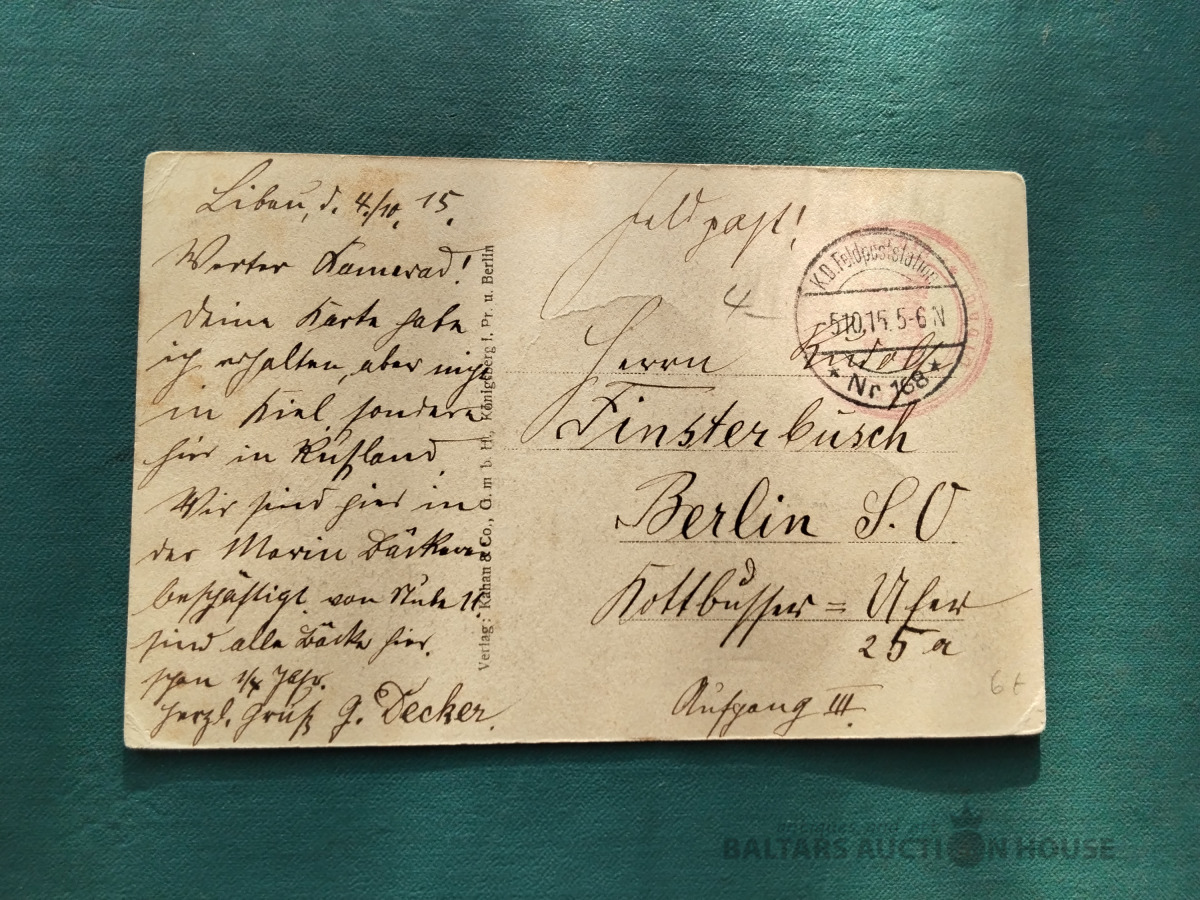 Libau, d. 4./10. 15.
Werter Kamerad!
Deine Karte habe
ich erhalten, aber nicht
in Kiel sondern
hier in Rußland
Wir sind hier in
der Marin Bäckerei
beschäftigt von Stube 11
sind alle Bäcker hier.
schon 1/4 Jahr.
Herzl. Gruß G. Decker.
Verlag: Kahan & Co., G. m. b. H., Königsberg i. Pr. u. Berlin
Feldpost!
K.D. Feldpoststation
-5.10.15. 5-6 N
* Nr 168 *
4
Herrn Rudolf
Finsterbusch
Berlin S. O
Kottbusser = Ufer
25 a
Aufgang III.
6t
BALTARS AUCTION HOUSE